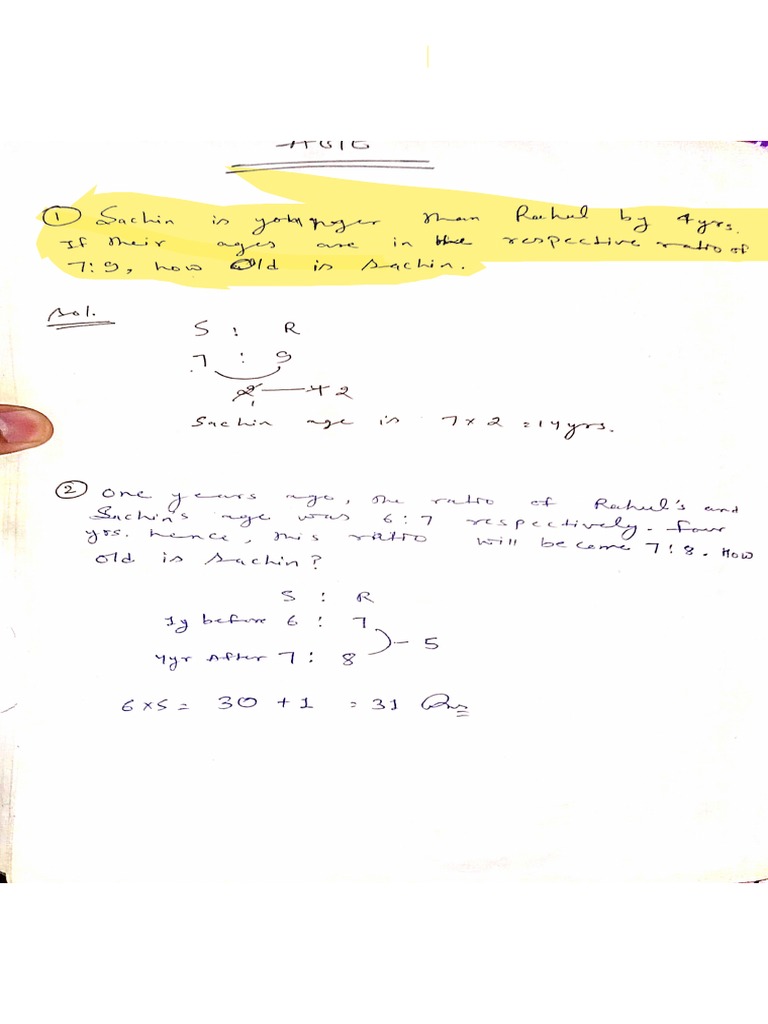 ① Sachin is younger than Rahul by 4yrs.
If their ages are in the respective ratio of
7:9, how old is sachin.
Sol.
S : R
7 : 9
2 — 2
Sachin age is 7 x 2 = 14 yrs.
② One years ago, the ratio of Rahul's and
Sachin's age was 6:7 respectively. Four
yrs. hence, this ratio will become 7:8. How
old is sachin?
S : R
1y before 6 : 7
4yr After 7 : 8 )— 5
6x5 = 30 + 1 = 31 Ans